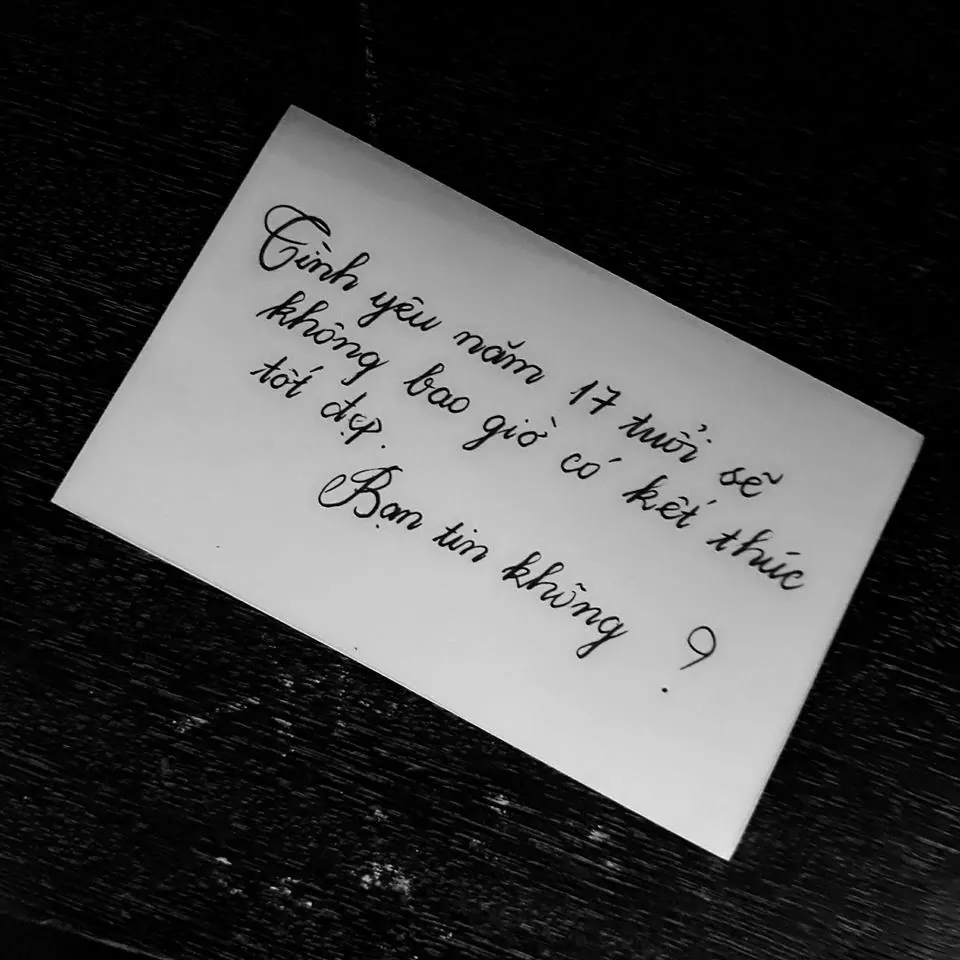 Tình yêu năm 17 tuổi sẽ
không bao giờ có kết thúc
tốt đẹp.
Bạn tin không ?